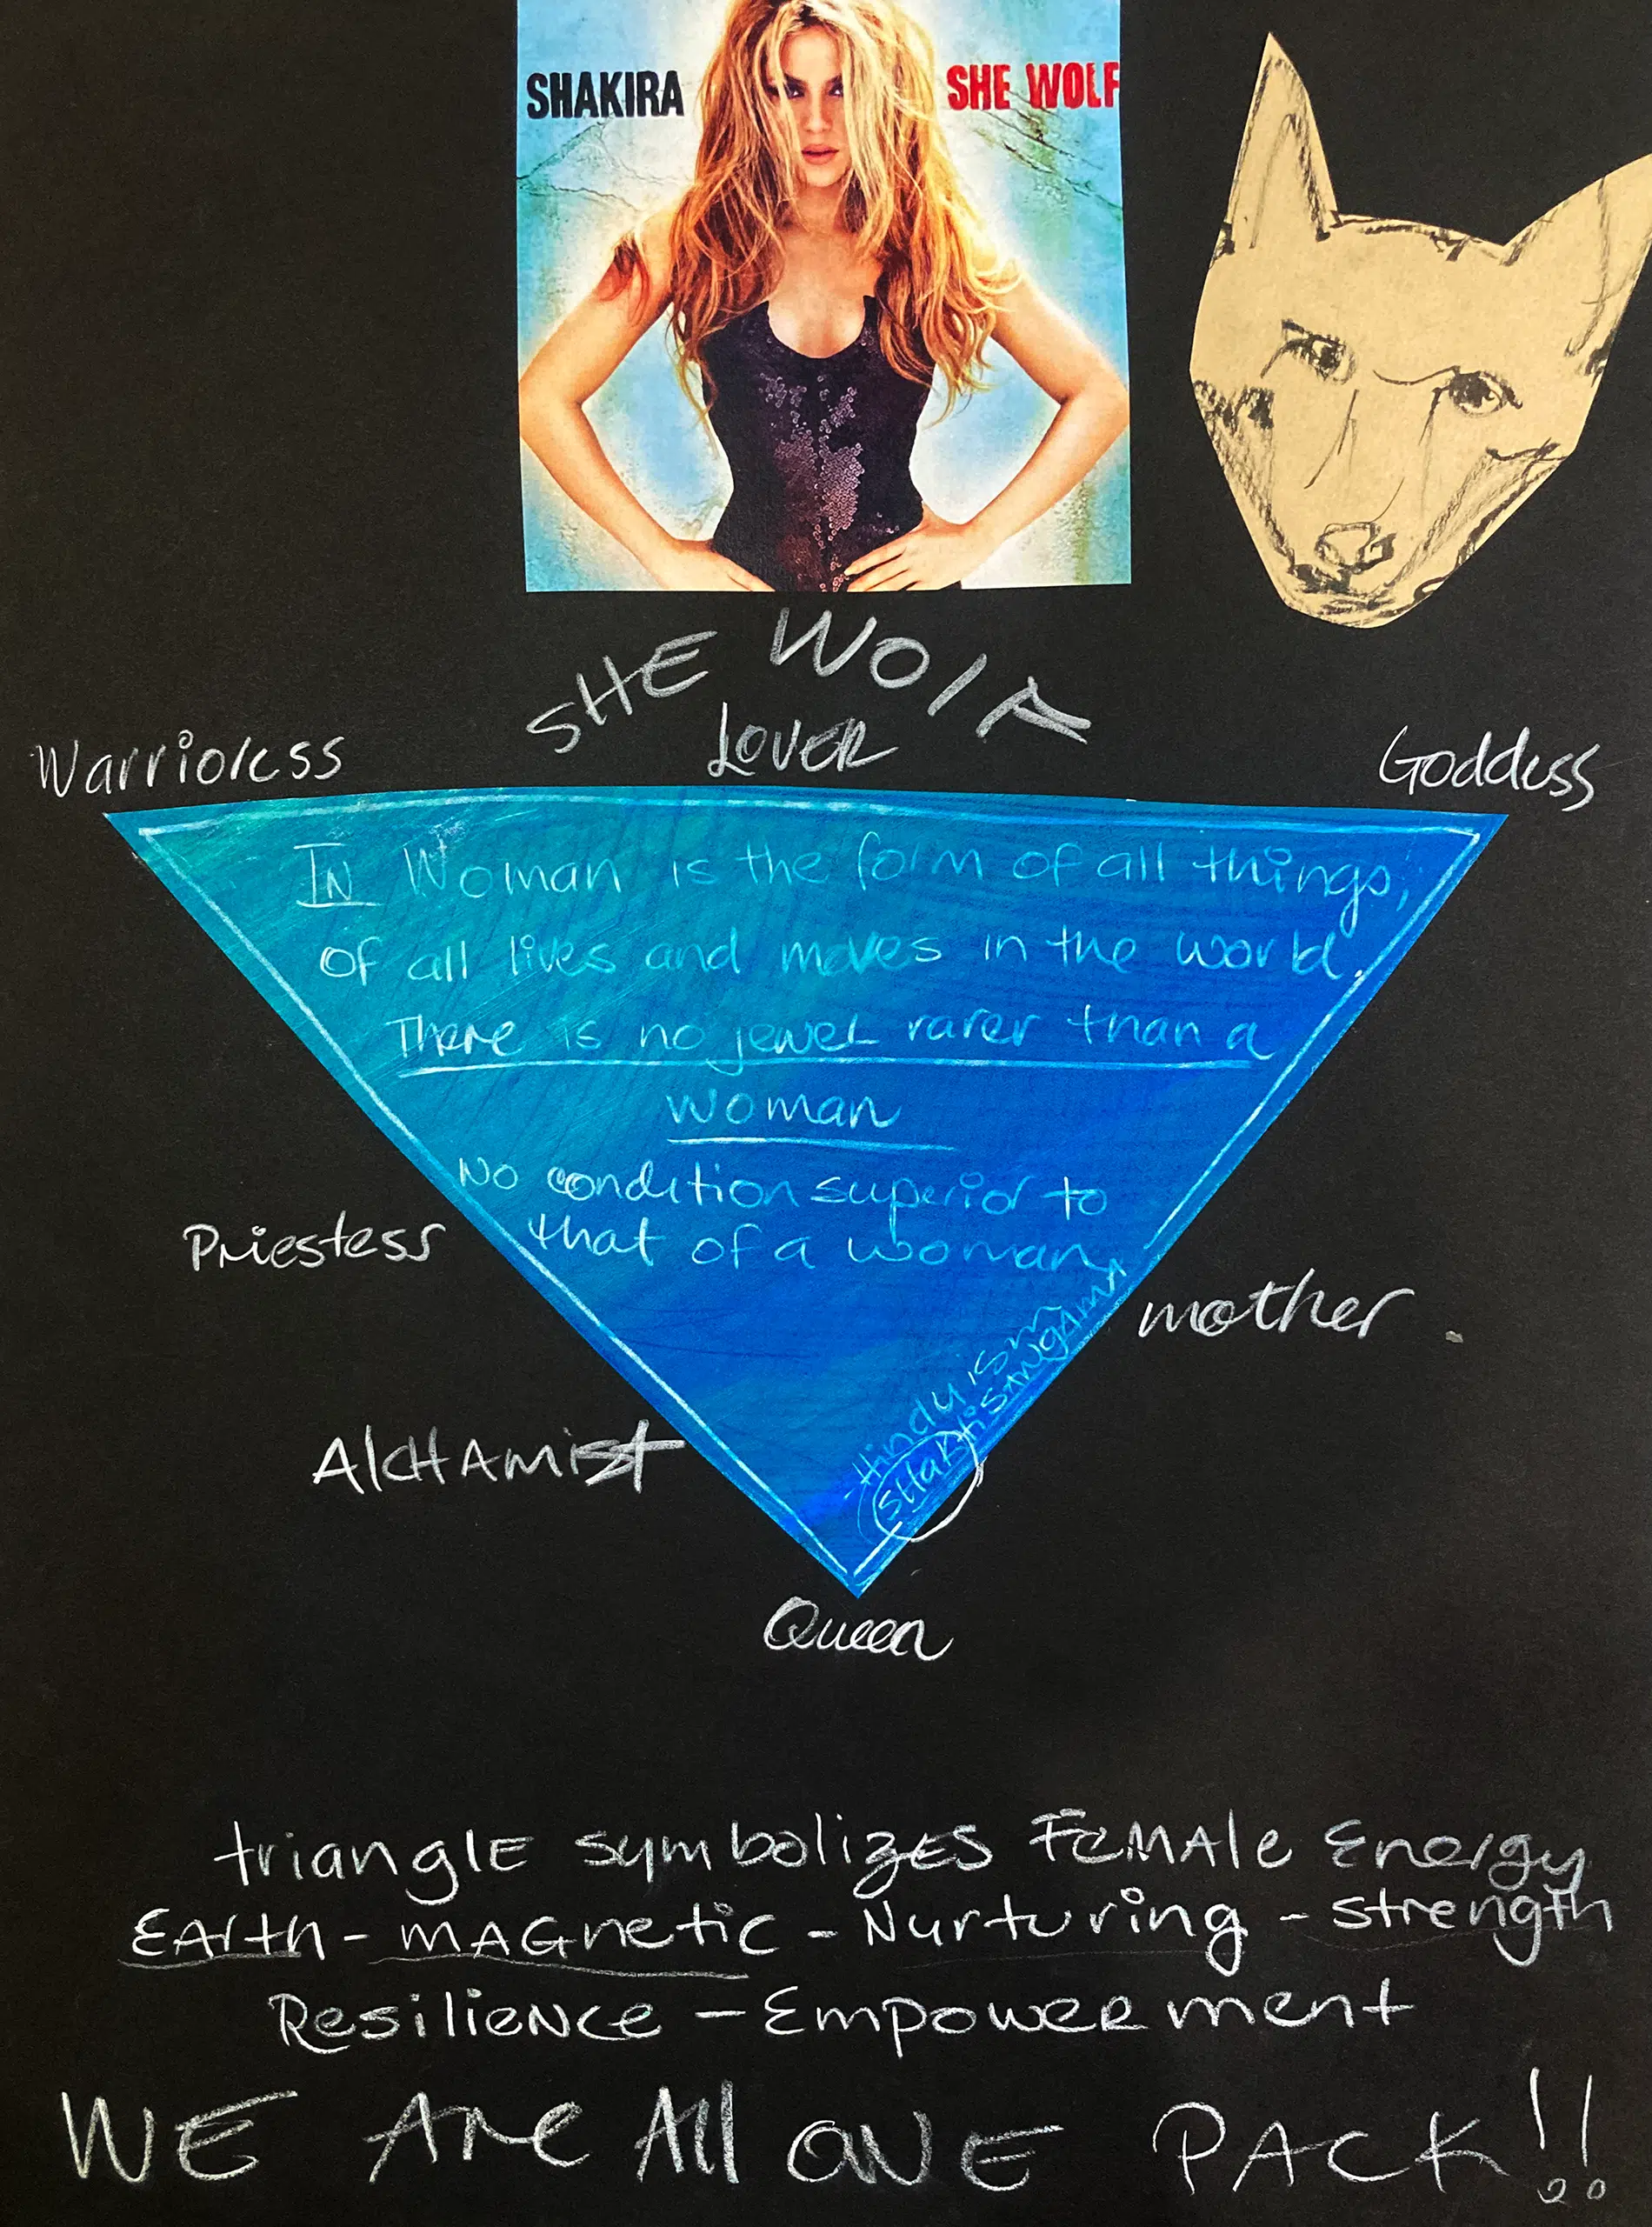 SHAKIRA
SHE WOLF
SHE WOlF
LOVER
Warrioress
Goddess
IN Woman is the form of all things,
of all lives and moves in the world.
There is no jewel rarer than a
woman
No condition superior to
that of a woman
-Hinduism
SHaktisANgAmA
Priestess
mother.
AlCHAmist
Queen
trianglE symbolizES FEMAle Energy
EArth - mAGnetic - Nurturing - strength
ResilieNce - EmpowERment
WE Are All ONE PACK!!